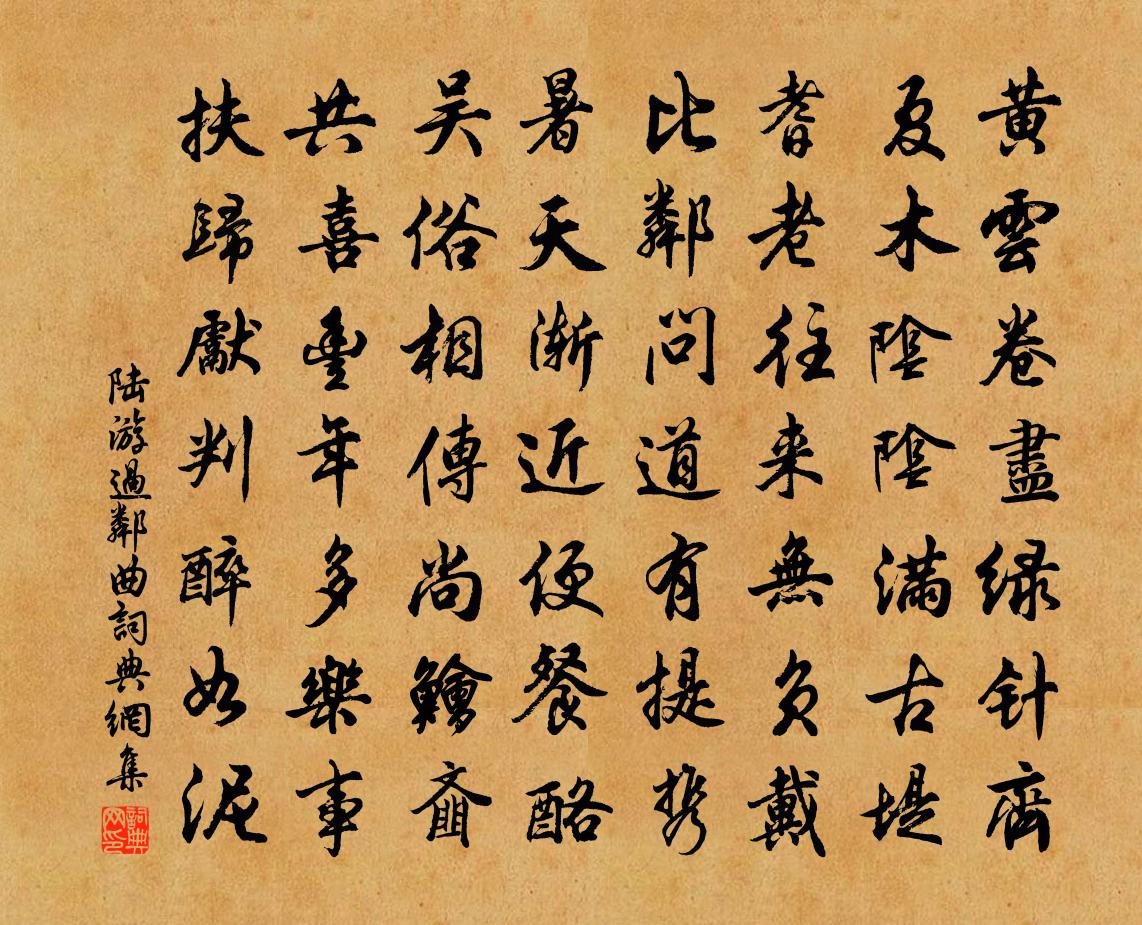 黃雲卷盡緑针齊
夏木陰陰滿古堤
耆老往来無負戴
比鄰問道有提携
暑天漸近便餐酪
吴俗相傳尚鱠齏
共喜豊年多樂事
扶歸獻判醉如泥
陆游過鄰曲詞典網集
詞典網印